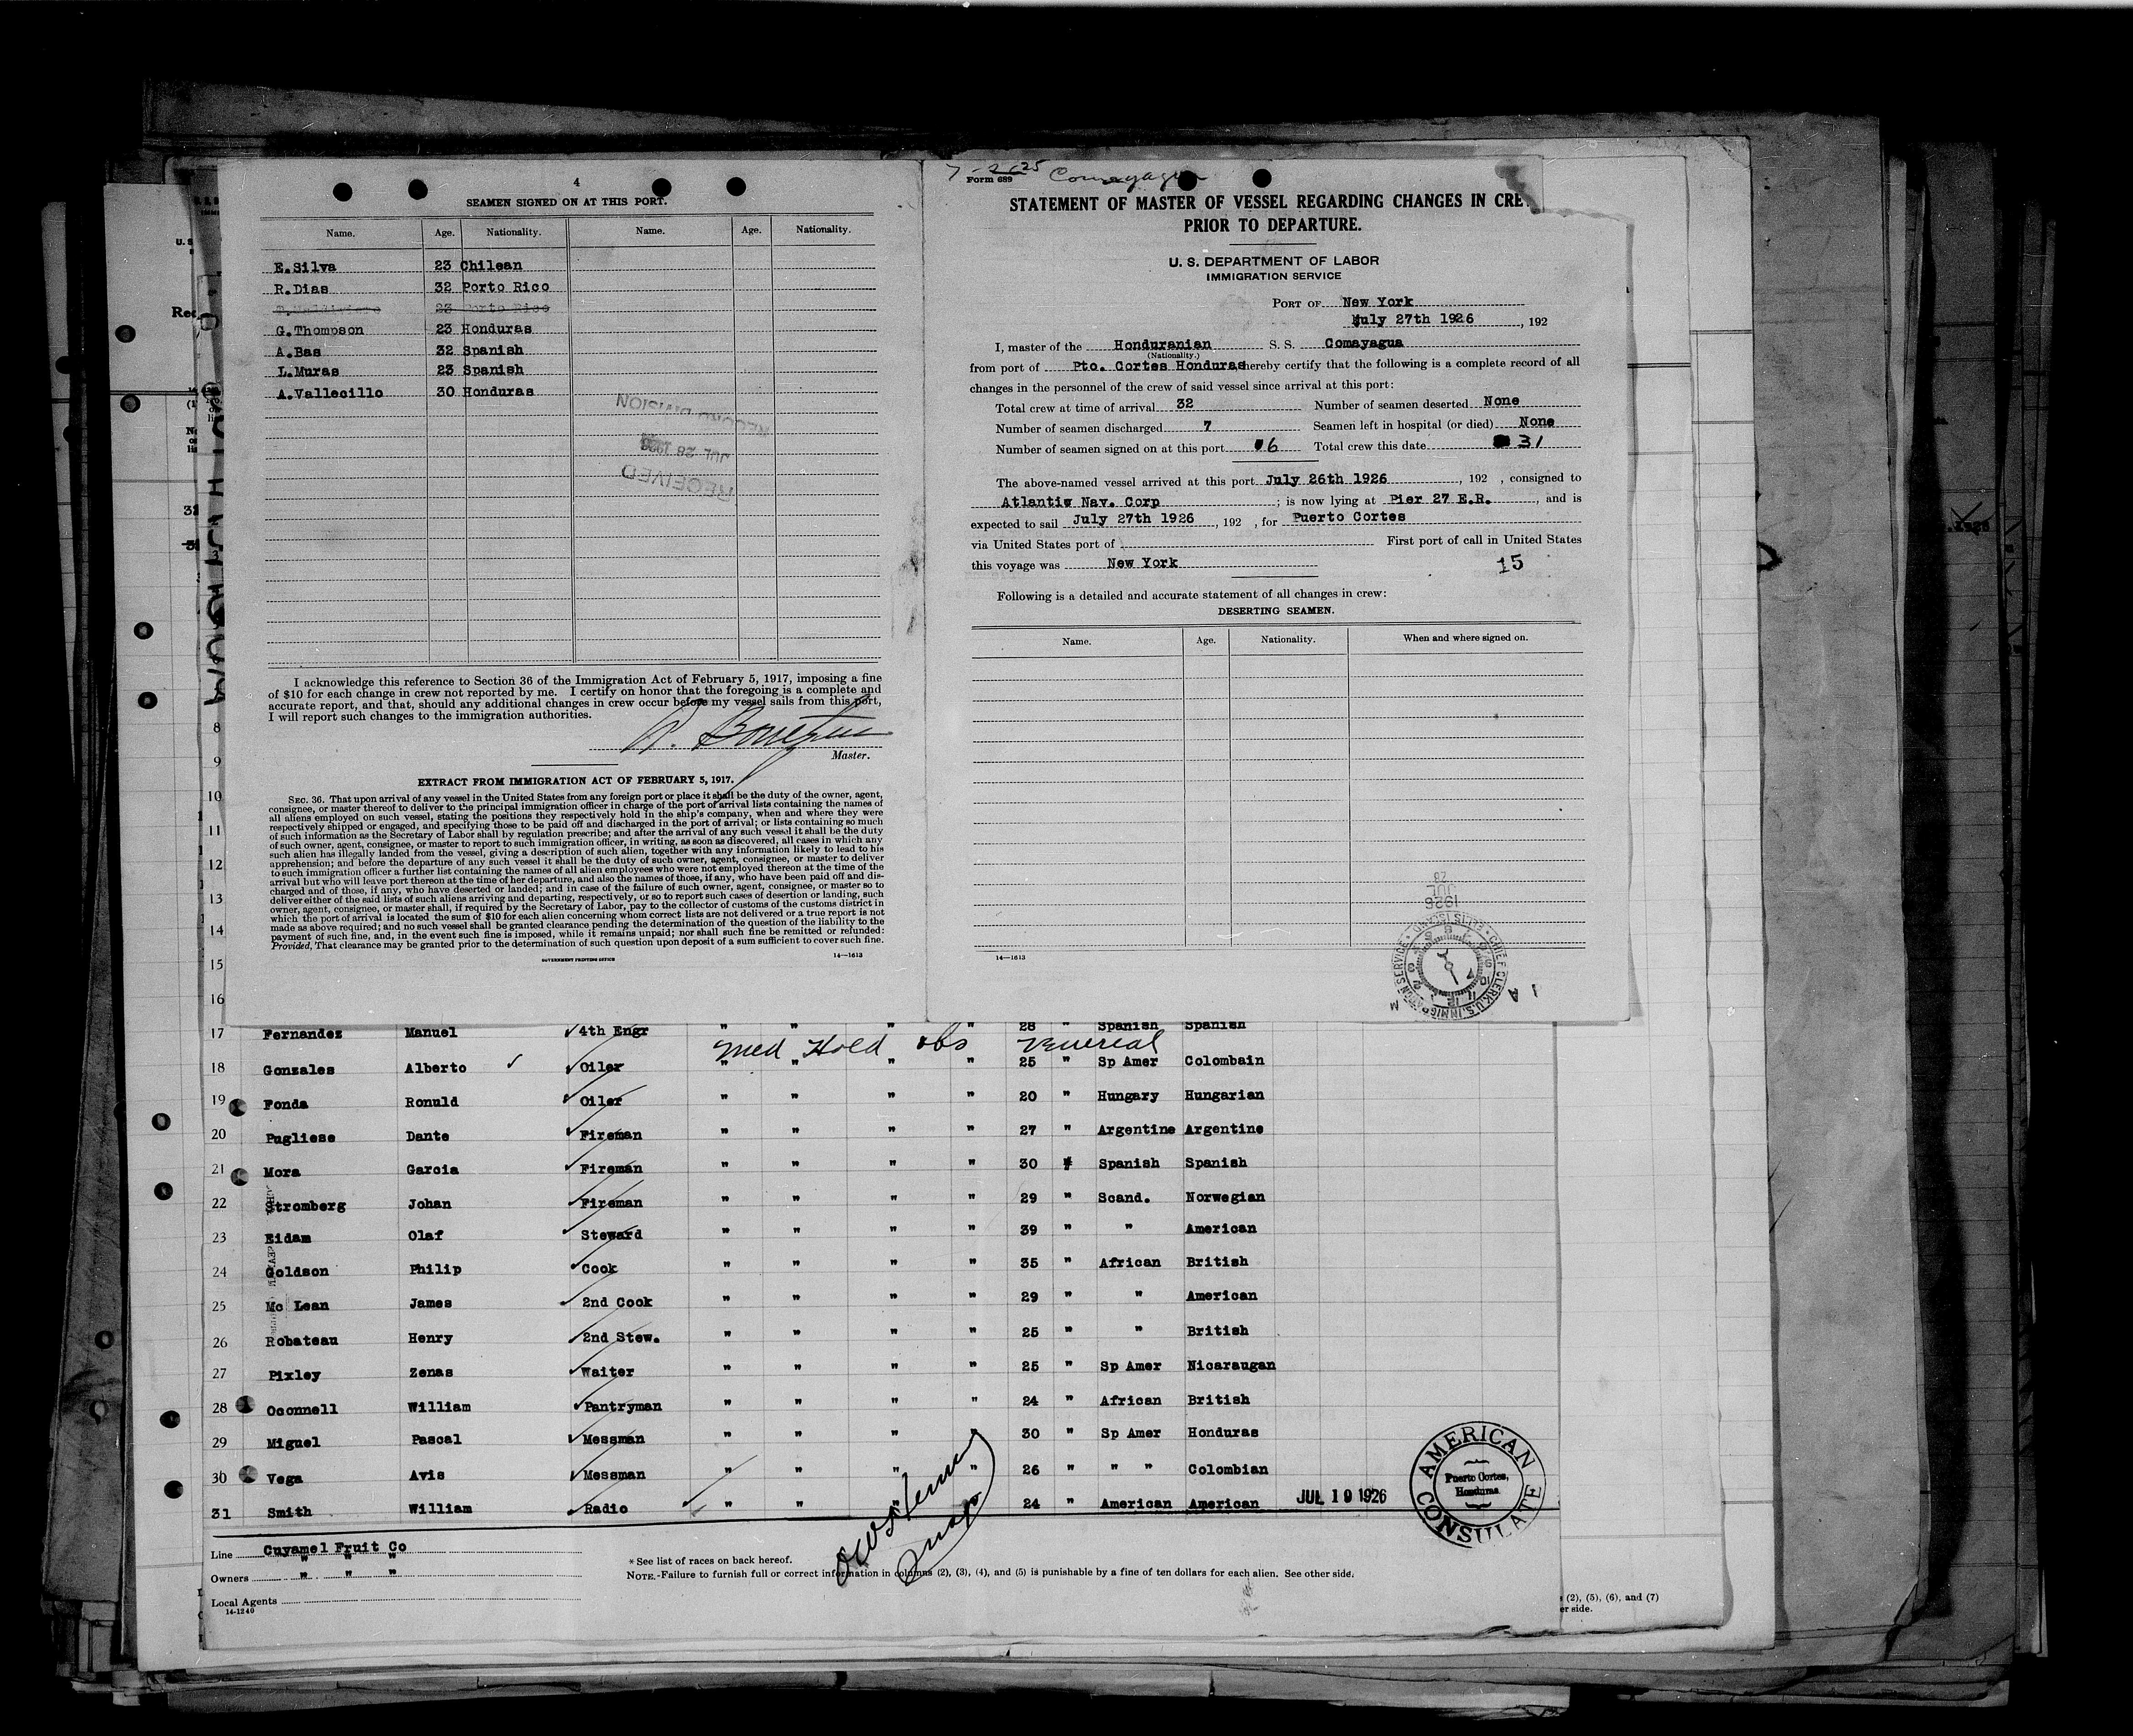 4
SEAMEN SIGNED ON AT THIS PORT.
Name. Age. Nationality. Name. Age. Nationality.
E.Silva 23 Chilean
R.Dias 32 Porto Rico
23 Porto Rico
G.Thompson 23 Honduras
A.Bas 32 Spanish
L.Muras 23 Spanish
A.Vallecillo 30 Honduras
RECORD DIVISION
JUL 28 1926
RECEIVED
I acknowledge this reference to Section 36 of the Immigration Act of February 5, 1917, imposing a fine
of $10 for each change in crew not reported by me. I certify on honor that the foregoing is a complete and
accurate report, and that, should any additional changes in crew occur before my vessel sails from this port,
I will report such changes to the immigration authorities.
Master.
EXTRACT FROM IMMIGRATION ACT OF FEBRUARY 5, 1917.
SEC. 36. That upon arrival of any vessel in the United States from any foreign port or place it shall be the duty of the owner, agent,
consignee, or master thereof to deliver to the principal immigration officer in charge of the port of arrival lists containing the names of
all aliens employed on such vessel, stating the positions they respectively hold in the ship's company, when and where they were
respectively shipped or engaged, and specifying those to be paid off and discharged in the port of arrival; or lists containing so much
of such information as the Secretary of Labor shall by regulation prescribe; and after the arrival of any such vessel it shall be the duty
of such owner, agent, consignee, or master to report to such immigration officer, in writing, as soon as discovered, all cases in which any
such alien has illegally landed from the vessel, giving a description of such alien, together with any information likely to lead to his
apprehension; and before the departure of any such vessel it shall be the duty of such owner, agent, consignee, or master to deliver
to such immigration officer a further list containing the names of all alien employees who were not employed thereon at the time of the
arrival but who will leave port thereon at the time of her departure, and also the names of those, if any, who have been paid off and dis-
charged and of those, if any, who have deserted or landed; and in case of the failure of such owner, agent, consignee, or master so to
deliver either of the said lists of such aliens arriving and departing, respectively, or so to report such cases of desertion or landing, such
owner, agent, consignee, or master shall, if required by the Secretary of Labor, pay to the collector of customs of the customs district in
which the port of arrival is located the sum of $10 for each alien concerning whom correct lists are not delivered or a true report is not
made as above required; and no such vessel shall be granted clearance pending the determination of the question of the liability to the
payment of such fine, and, in the event such fine is imposed, while it remains unpaid; nor shall such fine be remitted or refunded:
Provided, That clearance may be granted prior to the determination of such question upon deposit of a sum sufficient to cover such fine.
GOVERNMENT PRINTING OFFICE 14—1613
Comayagua
Form 689
STATEMENT OF MASTER OF VESSEL REGARDING CHANGES IN CRE
PRIOR TO DEPARTURE.
U. S. DEPARTMENT OF LABOR
IMMIGRATION SERVICE
PORT OF New York
July 27th 1926, 192
I, master of the Honduranian S. S. Comayagua
(Nationality.)
from port of Pto. Cortes Honduras hereby certify that the following is a complete record of all
changes in the personnel of the crew of said vessel since arrival at this port:
Total crew at time of arrival 32 Number of seamen deserted None
Number of seamen discharged 7 Seamen left in hospital (or died) None
Number of seamen signed on at this port 6 Total crew this date 31
The above-named vessel arrived at this port July 26th 1926, 192 , consigned to
Atlantic Nav. Corp ; is now lying at Pier 27 E.R. , and is
expected to sail July 27th 1926, 192 , for Puerto Cortes
via United States port of First port of call in United States
this voyage was New York 15
Following is a detailed and accurate statement of all changes in crew:
DESERTING SEAMEN.
Name. Age. Nationality. When and where signed on.
28
JUL
1926
CHIEF CLERK, U.S. IMMIGRATION SERVICE ELLIS ISLAND
14—1613
8
9
10
11
12
13
14
15
16
17 Fernandez Manuel 4th Engr " " " " 28 " Spanish Spanish
Med Hold obs Venereal
18 Gonzales Alberto Oiler " " " " 25 " Sp Amer Colombain
19 Fonda Ronuld Oiler " " " " 20 " Hungary Hungarian
20 Pugliese Dante Fireman " " " " 27 " Argentine Argentine
21 Mora Garcia Fireman " " " " 30 " Spanish Spanish
22 Stromberg Johan Fireman " " " " 29 " Scand. Norwegian
23 Eidam Olaf Steward " " " " 39 " " American
24 Goldson Philip Cook " " " " 35 " African British
25 Mc Lean James 2nd Cook " " " " 29 " " American
26 Robateau Henry 2nd Stew. " " " " 25 " " British
27 Pixley Zenas Waiter " " " " 25 " Sp Amer Nicaraugan
28 Oconnell William Pantryman " " " " 24 " African British
29 Miguel Pascal Messman " " " 30 " Sp Amer Honduras
30 Vega Avis Messman " " " " 26 " " " Colombian
31 Smith William Radio " " " 24 " American American JUL 19 1926
AMERICAN CONSULATE
Puerto Cortes,
Honduras
Line Cuyamel Fruit Co
Owners " " "
Local Agents
14-1240
*See list of races on back hereof.
NOTE.-Failure to furnish full or correct information in columns (2), (3), (4), and (5) is punishable by a fine of ten dollars for each alien. See other side.
(2), (5), (6), and (7)
er side.